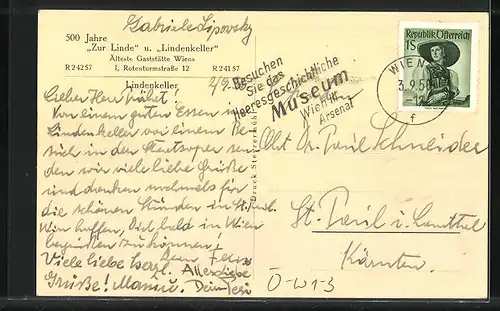 Gabriele Lipovsky
500 Jahre
"Zur Linde" u. "Lindenkeller"
Älteste Gaststätte Wiens
R 24257 I, Rotenturmstraße 12 R 24157
Lindenkeller 2/9.
Lieber Herr
Von einem guten Essen im
Lindenkeller vor einem Be-
such in der Staatsoper sen-
den wir viele liebe Grüße
und denken nochmals für
die schönen Stunden in St. Paul.
Wir hoffen, Dich bald in Wien
begrüßen zu können,
Viele liebe
Grüße! Allerliebe
Druck Steyrermühl
Besuchen
Sie das
Heeresgeschichtliche
Museum
Wien III
Arsenal
Republik Österreich
1S
WIEN
3. 9. 50
f
Paul Schneider
St. Paul i. Lavanttal
Kärnten.
Ö-W1-3